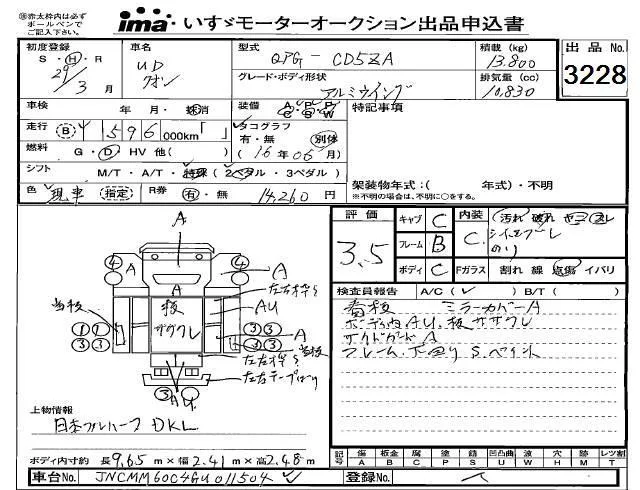 ㊟赤太枠内は必ず
ボールペンで
ご記入下さい。
ima いすゞモーターオークション出品申込書
初度登録 車名 型式 積載(kg) 出品No.
S・H・R UD QPG - CD5ZA 13.800 3228
29年 クオン グレード・ボディ形状 排気量(cc)
3月 アルミウイング 10,830
車検 年 月・抹消 装備 特記事項
走行 596 000km「 」 タコグラフ
有・無 別体
燃料 G・D・HV 他( ) (16年06月)
シフト M/T・A/T・ (2ペダル・3ペダル) 架装物年式:( 年式)・不明
※不明の場合は、不明に○をする。
色 現車(指定) R券 有・無 14,260円
評価 キャブ C 内装 汚れ 破れ
3.5 フレーム B C
ボディ C Fガラス 割れ 線 飛傷 イバリ
検査員報告 A/C( ✓ ) B/T( )
看板 ミラーカバーA
ボディ内AU、板ササクレ
サイドガードA
フレーム・下回りS.ペイント
A
④ ④
A A
A
板 ササクレ
AU
A
① ① ③ ③
③ ③ ③ ③
③ AU
上物情報
日本フルハーフ DKL
ボディ内寸約 長9.65m×幅2.41m×高2.48m
記号 傷 板金 腐 塗 錆 凹凸曲 波 穴 時 レツ割
A B C P S U W H M T
車台No. JNCMM60C4GU011504 登録No.